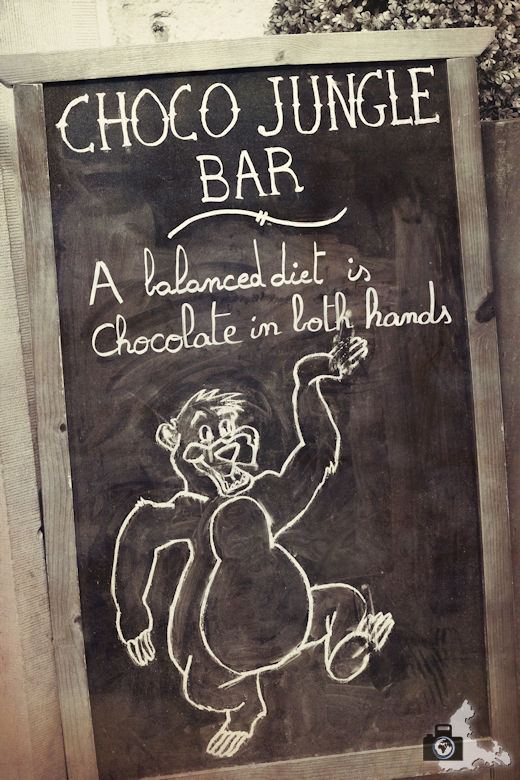 CHOCO JUNGLE
BAR
A balanced diet is
chocolate in both hands